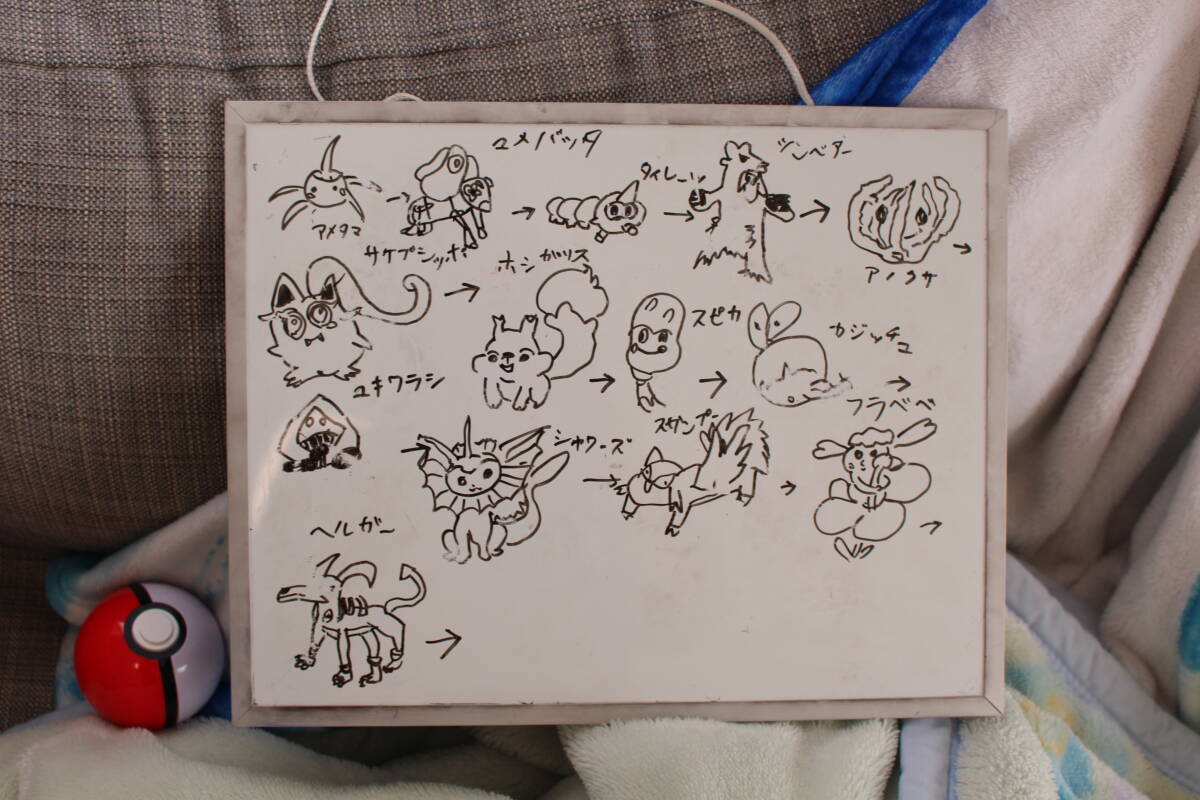 マメバッタ
ツンベアー
タイレーツ
アメタマ
アノクサ
サケブシッポ
ホシガリス
スピカ
カジッチュ
ユキワラシ
フラベベ
スカンプー
シャワーズ
ヘルガー